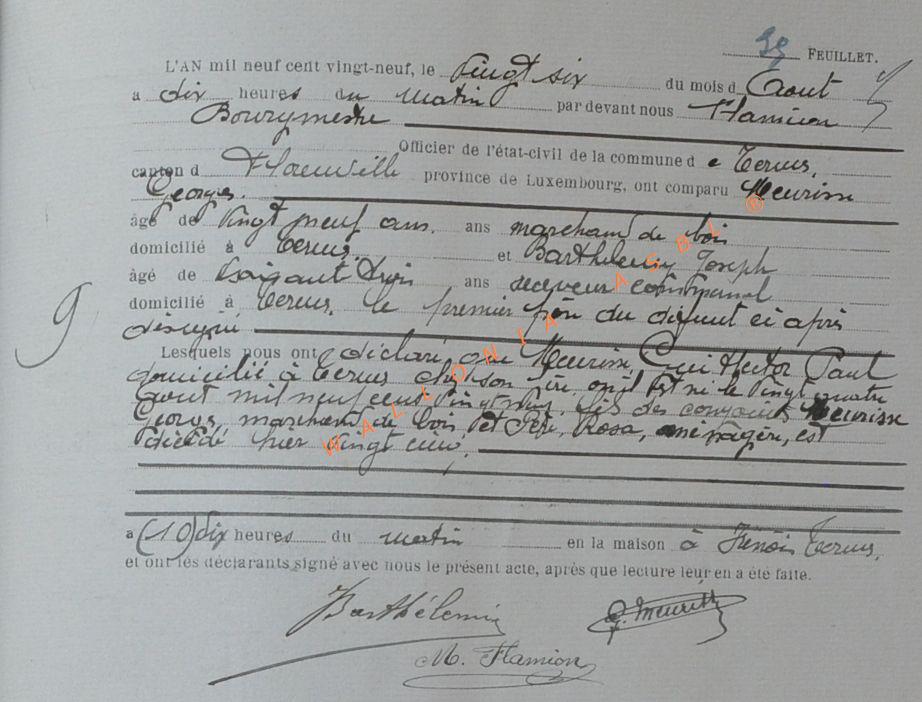 39 FEUILLET.
L'AN mil neuf cent vingt-neuf, le vingt six du mois d Août
a dix heures du matin par devant nous Flamion
Bourgmestre
Officier de l'état-civil de la commune d e Termes,
canton d Florenville province de Luxembourg, ont comparu Meurisse
Georges.
âgé de vingt neuf ans. ans marchand de bois
domicilié à Termes. et Barthélemy Joseph
âgé de ans receveur communal
domicilié à Termes. le premier père du défunt ci après
désigné
Lesquels nous ont déclaré que Meurisse, Gui Hector Paul
domicilié à Termes chez son père où il est né le vingt quatre
août mil neuf cent vingt neuf, fils des conjoints Meurisse
Georges, marchand de bois et Rosa, ménagère, est
décédé hier vingt cinq,
a (10) dix heures du matin en la maison à Frenois Termes.
et ont les déclarants signé avec nous le présent acte, après que lecture leur en a été faite.
9
Barthélemi
G. Meurisse
M. Flamion
WALLONIA ASBL ®